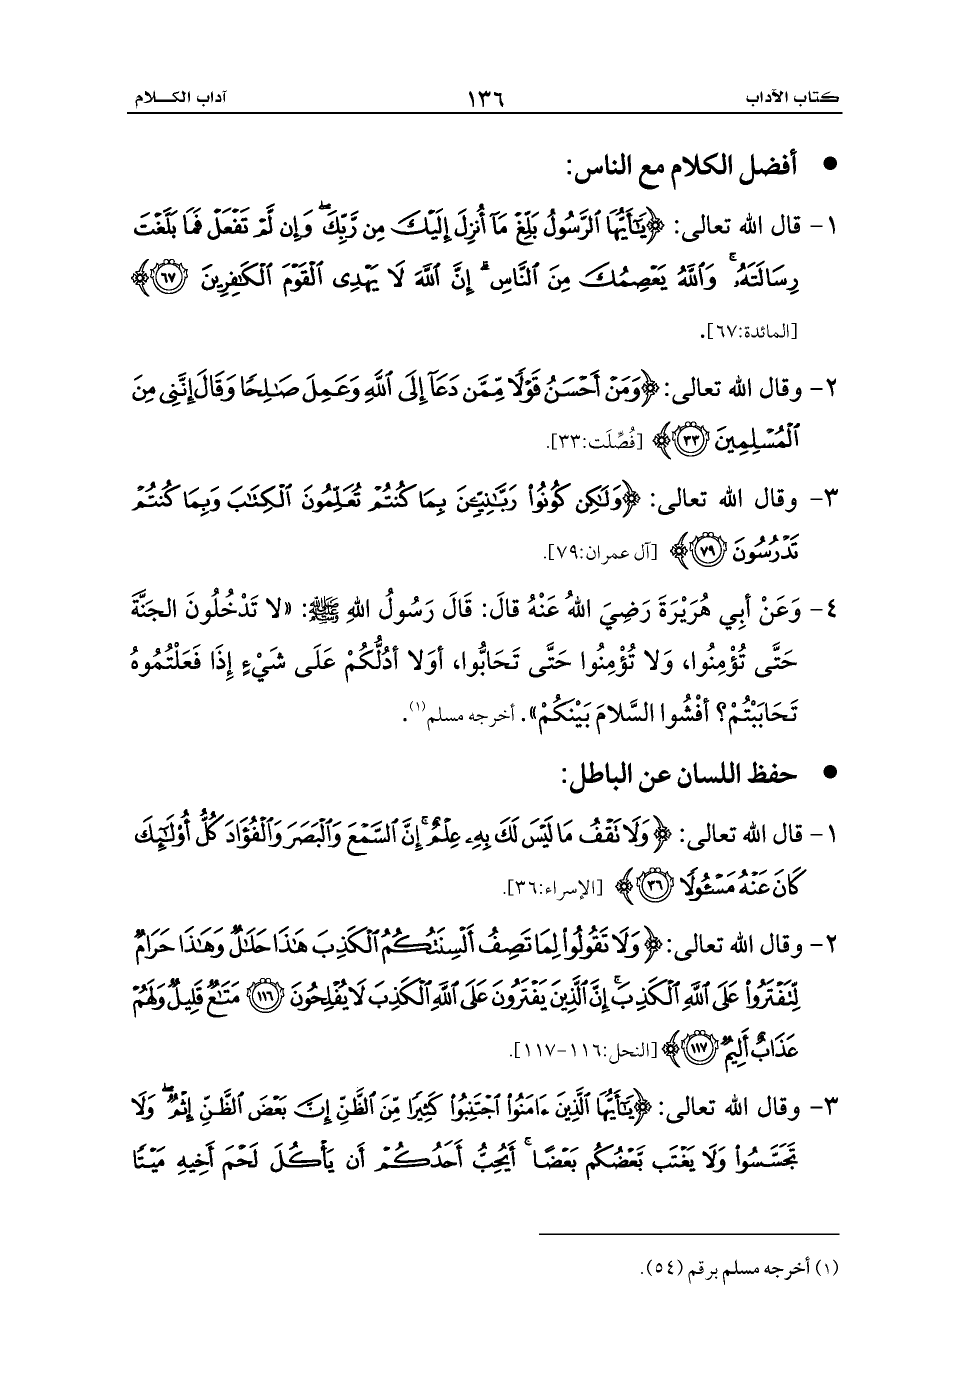 كتاب الآداب ١٣٦ آداب الكـــلام
● أفضل الكلام مع الناس:
١- قال الله تعالى: ﴿يَٰٓأَيُّهَا ٱلرَّسُولُ بَلِّغۡ مَآ أُنزِلَ إِلَيۡكَ مِن رَّبِّكَۖ وَإِن لَّمۡ تَفۡعَلۡ فَمَا بَلَّغۡتَ
رِسَالَتَهُۥۚ وَٱللَّهُ يَعۡصِمُكَ مِنَ ٱلنَّاسِۗ إِنَّ ٱللَّهَ لَا يَهۡدِى ٱلۡقَوۡمَ ٱلۡكَٰفِرِينَ ۝٦٧﴾
[المائدة:٦٧].
٢- وقال الله تعالى: ﴿وَمَنۡ أَحۡسَنُ قَوۡلٗا مِّمَّن دَعَآ إِلَى ٱللَّهِ وَعَمِلَ صَٰلِحٗا وَقَالَ إِنَّنِى مِنَ
ٱلۡمُسۡلِمِينَ ۝٣٣﴾ [فُصِّلَت:٣٣].
٣- وقال الله تعالى: ﴿وَلَٰكِن كُونُواْ رَبَّٰنِيِّۦنَ بِمَا كُنتُمۡ تُعَلِّمُونَ ٱلۡكِتَٰبَ وَبِمَا كُنتُمۡ
تَدۡرُسُونَ ۝٧٩﴾ [آل عمران:٧٩].
٤- وَعَنْ أبِي هُرَيْرَةَ رَضِيَ اللهُ عَنْهُ قالَ: قَالَ رَسُولُ اللهِ ﷺ: «لا تَدْخُلُونَ الجَنَّةَ
حَتَّى تُؤْمِنُوا، وَلا تُؤْمِنُوا حَتَّى تَحَابُّوا، أوَلا أدُلُّكُمْ عَلَى شَيْءٍ إِذَا فَعَلْتُمُوهُ
تَحَابَبْتُمْ؟ أفْشُوا السَّلامَ بَيْنَكُمْ». أخرجه مسلم(١).
● حفظ اللسان عن الباطل:
١- قال الله تعالى: ﴿وَلَا تَقۡفُ مَا لَيۡسَ لَكَ بِهِۦ عِلۡمٌۚ إِنَّ ٱلسَّمۡعَ وَٱلۡبَصَرَ وَٱلۡفُؤَادَ كُلُّ أُوْلَٰٓئِكَ
كَانَ عَنۡهُ مَسۡـُٔولٗا ۝٣٦﴾ [الإسراء:٣٦].
٢- وقال الله تعالى: ﴿وَلَا تَقُولُواْ لِمَا تَصِفُ أَلۡسِنَتُكُمُ ٱلۡكَذِبَ هَٰذَا حَلَٰلٞ وَهَٰذَا حَرَامٞ
لِّتَفۡتَرُواْ عَلَى ٱللَّهِ ٱلۡكَذِبَۚ إِنَّ ٱلَّذِينَ يَفۡتَرُونَ عَلَى ٱللَّهِ ٱلۡكَذِبَ لَا يُفۡلِحُونَ ۝١١٦ مَتَٰعٞ قَلِيلٞ وَلَهُمۡ
عَذَابٌ أَلِيمٞ ۝١١٧﴾ [النحل:١١٦-١١٧].
٣- وقال الله تعالى: ﴿يَٰٓأَيُّهَا ٱلَّذِينَ ءَامَنُواْ ٱجۡتَنِبُواْ كَثِيرٗا مِّنَ ٱلظَّنِّ إِنَّ بَعۡضَ ٱلظَّنِّ إِثۡمٞۖ وَلَا
تَجَسَّسُواْ وَلَا يَغۡتَب بَّعۡضُكُم بَعۡضًاۚ أَيُحِبُّ أَحَدُكُمۡ أَن يَأۡكُلَ لَحۡمَ أَخِيهِ مَيۡتٗا
(١) أخرجه مسلم برقم (٥٤).